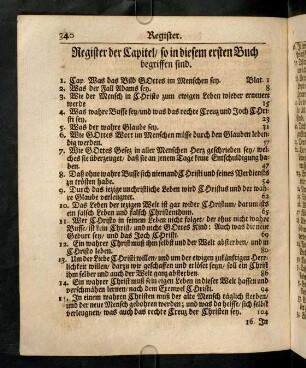 340 Register.
Register der Capitel/ so in diesem ersten Buch
begriffen sind.
1. Cap. Was das Bild GOttes im Menschen sey. Blat. 1
2. Was der Fall Adams sey. 8
3. Wie der Mensch in CHristo zum ewigen Leben wieder erneuert
werde 15
4. Was wahre Busse sey/ und was das rechte Creuz und Joch CHri-
sti sey. 23
5. Was der wahre Glaube sey. 31
6. Wie GOttes Wort im Menschen müsse durch den Glauben leben-
dig werden. 37
7. Wie GOttes Gesetz in aller Menschen Herz geschrieben sey/ wel-
ches sie überzeuget/ daß sie an jenem Tage keine Entschuldigung ha-
ben. 47
8. Daß ohne wahre Busse sich niemand CHristi und seines Verdiensts
zu trösten habe. 54
9. Durch das jezige unchristliche Leben wird CHristus und der wah-
re Glaube verleugnet. 62
10. Das Leben der jezigen Welt ist gar wider CHristum/ darum ists
ein falsch Leben und falsch Christenthum.
11. Wer CHristo in seinem Leben nicht folget/ der thut nicht wahre
Busse/ ist kein Christ/ und nicht GOttes Kind: Auch was die neue
Geburt sey/ und das Joch CHristi.
12. Ein wahrer Christ muß ihm selbst und der Welt absterben/ und in
CHristo leben.
13. Um der Liebe CHristi willen/ und um der ewigen zukünfftigen Herr-
lichkeit willen/ darzu wir geschaffen und erlöset seyn/ soll ein Christ
ihm selber und auch der Welt gern absterben
14. Ein wahrer Christ muß sein eigen Leben in dieser Welt hassen und
verschmähen lernen/ nach dem Exempel CHristi.
15. In einem wahren Christen muß der alte Mensch täglich sterben/
und der neue Mensch gebohren werden: und was da heisse/ sich selbst
verleugnen/ was auch das rechte Creuz der Christen sey. 104
16. In